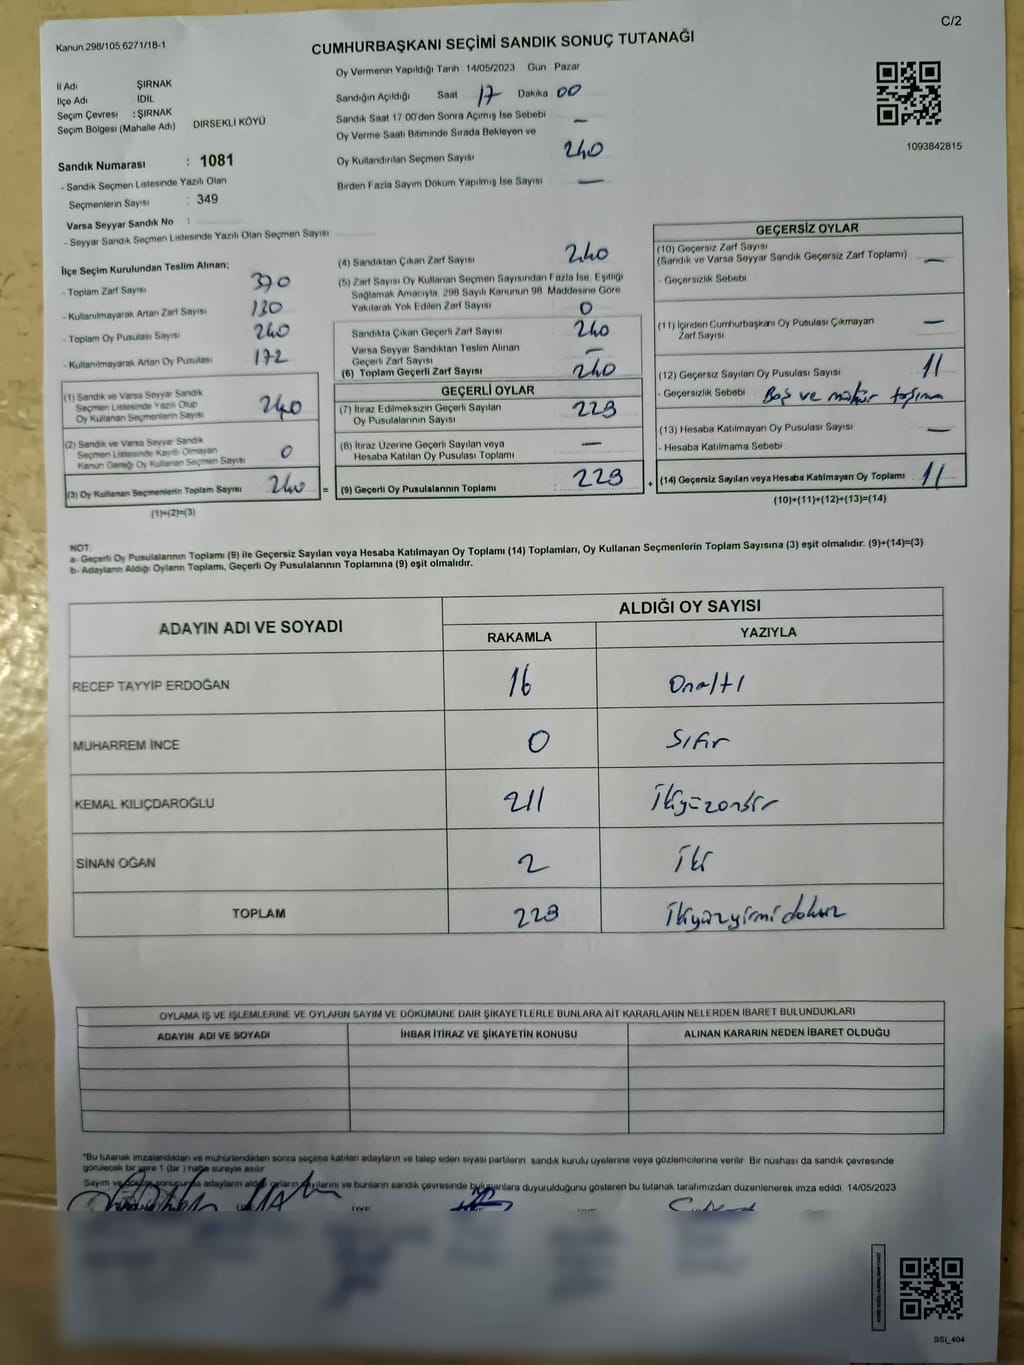 C/2
Kanun 298/105 6271/18-1
CUMHURBAŞKANI SEÇİMİ SANDIK SONUÇ TUTANAĞI
İl Adı ŞIRNAK
İlçe Adı İDİL
Seçim Çevresi : ŞIRNAK
Seçim Bölgesi (Mahalle Adı) DİRSEKLİ KÖYÜ
Sandık Numarası : 1081
- Sandık Seçmen Listesinde Yazılı Olan
Seçmenlerin Sayısı : 349
Varsa Seyyar Sandık No :
- Seyyar Sandık Seçmen Listesinde Yazılı Olan Seçmen Sayısı
Oy Vermenin Yapıldığı Tarih 14/05/2023 Gün Pazar
Sandığın Açıldığı Saat 17 Dakika 00
Sandık Saat 17 00'den Sonra Açımış İse Sebebi —
Oy Verme Saati Bitiminde Sırada Bekleyen ve
Oy Kullandırılan Seçmen Sayısı 240
Birden Fazla Sayım Döküm Yapılmış İse Sayısı —
1093842815
İlçe Seçim Kurulundan Teslim Alınan;
- Toplam Zarf Sayısı 370
- Kullanılmayarak Artan Zarf Sayısı 130
- Toplam Oy Pusulası Sayısı 240
- Kullanılmayarak Artan Oy Pusulası 172
(1) Sandık ve Varsa Seyyar Sandık
Seçmen Listesinde Yazılı Olup
Oy Kullanan Seçmenlerin Sayısı 240
(2) Sandık ve Varsa Seyyar Sandık
Seçmen Listesinde Kayıtlı Olmayan
Kanun Gereği Oy Kullanan Seçmen Sayısı 0
(3) Oy Kullanan Seçmenlerin Toplam Sayısı 240 =
(1)+(2)=(3)
(4) Sandıktan Çıkan Zarf Sayısı 240
(5) Zarf Sayısı Oy Kullanan Seçmen Sayısından Fazla İse, Eşitliği
Sağlamak Amacıyla, 298 Sayılı Kanunun 98. Maddesine Göre
Yakılarak Yok Edilen Zarf Sayısı 0
Sandıkta Çıkan Geçerli Zarf Sayısı 240
Varsa Seyyar Sandıktan Teslim Alınan
Geçerli Zarf Sayısı —
(6) Toplam Geçerli Zarf Sayısı 240
GEÇERLİ OYLAR
(7) İtiraz Edilmeksizin Geçerli Sayılan
Oy Pusulalarının Sayısı 229
(8) İtiraz Üzerine Geçerli Sayılan veya
Hesaba Katılan Oy Pusulası Toplamı —
(9) Geçerli Oy Pusulalarının Toplamı : 229 +
GEÇERSİZ OYLAR
(10) Geçersiz Zarf Sayısı
(Sandık ve Varsa Seyyar Sandık Geçersiz Zarf Toplamı) —
- Geçersizlik Sebebi
(11) İçinden Cumhurbaşkanı Oy Pusulası Çıkmayan
Zarf Sayısı —
(12) Geçersiz Sayılan Oy Pusulası Sayısı 11
- Geçersizlik Sebebi Boş ve mühür taşıma
(13) Hesaba Katılmayan Oy Pusulası Sayısı —
- Hesaba Katılmama Sebebi
(14) Geçersiz Sayılan veya Hesaba Katılmayan Oy Toplamı 11
(10)+(11)+(12)+(13)=(14)
NOT:
a- Geçerli Oy Pusulalarının Toplamı (9) ile Geçersiz Sayılan veya Hesaba Katılmayan Oy Toplamı (14) Toplamları, Oy Kullanan Seçmenlerin Toplam Sayısına (3) eşit olmalıdır. (9)+(14)=(3)
b- Adayların Aldığı Oyların Toplamı, Geçerli Oy Pusulalarının Toplamına (9) eşit olmalıdır.
ADAYIN ADI VE SOYADI ALDIĞI OY SAYISI
RAKAMLA YAZIYLA
RECEP TAYYİP ERDOĞAN 16 Onaltı
MUHARREM İNCE 0 Sıfır
KEMAL KILIÇDAROĞLU 211 İkiyüzonbir
SİNAN OĞAN 2 İki
TOPLAM 229 İkiyüzyirmidokuz
OYLAMA İŞ VE İŞLEMLERİNE VE OYLARIN SAYIM VE DÖKÜMÜNE DAİR ŞİKAYETLERLE BUNLARA AİT KARARLARIN NELERDEN İBARET BULUNDUKLARI
ADAYIN ADI VE SOYADI İHBAR İTİRAZ VE ŞİKAYETİN KONUSU ALINAN KARARIN NEDEN İBARET OLDUĞU
"Bu tutanak imzalandıktan ve mühürlendikten sonra seçime katılan adayların ve talep eden siyası partilerin sandık kurulu üyelerine veya gözlemcilerine verilir Bir nüshası da sandık çevresinde
görülecek bir yere 1 (bir) hafta süreyle asılır
Sayım ve döküm sonucunda adayların aldığı oyların sayılarını ve bunların sandık çevresinde bulunanlara duyurulduğunu gösteren bu tutanak tarafımızdan düzenlenerek imza edildi 14/05/2023
SSI_404